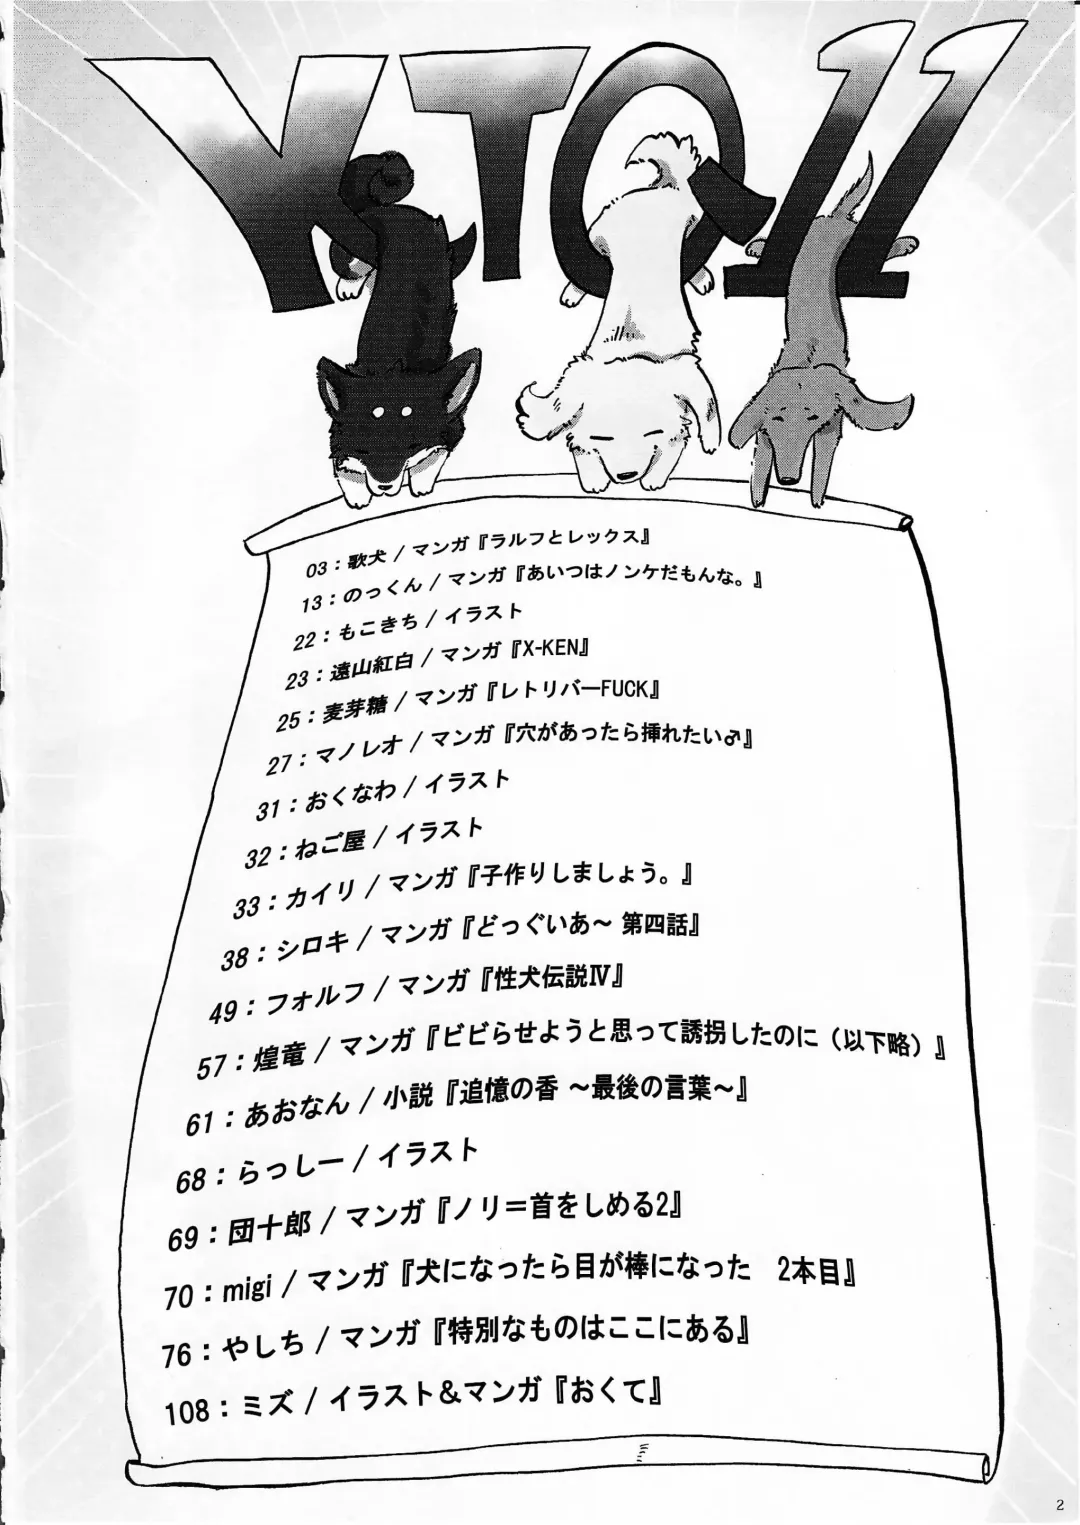 YTO11
03：歌犬 / マンガ『ラルフとレックス』
13：のっくん / マンガ『あいつはノンケだもんな。』
22：もこきち / イラスト
23：遠山紅白 / マンガ『X-KEN』
25：麦芽糖 / マンガ『レトリバーFUCK』
27：マノレオ / マンガ『穴があったら挿れたい♂』
31：おくなわ / イラスト
32：ねご屋 / イラスト
33：カイリ / マンガ『子作りしましょう。』
38：シロキ / マンガ『どっぐいあ～ 第四話』
49：フォルフ / マンガ『性犬伝説Ⅳ』
57：煌竜 / マンガ『ビビらせようと思って誘拐したのに（以下略）』
61：あおなん / 小説『追憶の香 ～最後の言葉～』
68：らっしー / イラスト
69：団十郎 / マンガ『ノリ＝首をしめる2』
70：migi / マンガ『犬になったら目が棒になった　2本目』
76：やしち / マンガ『特別なものはここにある』
108：ミズ / イラスト＆マンガ『おくて』
2